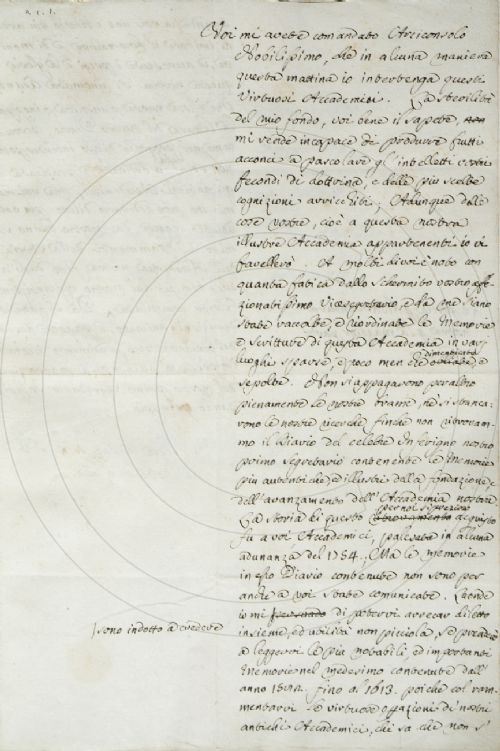 Voi mi avete comandato Arciconsolo
Nobilissimo, che in alcuna maniera
questa mattina io intertenga questi
Virtuosi Accademici. La sterilità
del mio fondo, voi bene il sapete, non
mi rende incapace di produrre frutti
acconci a pascolare gl'intelletti vostri
fecondi di dottrina, e delle più scelte
cognizioni arricchiti; Adunque delle
cose vostre, cioè a questa nostra
illustre Accademia appartenenti io vi
favellerò. A molti di voi è noto con
quanta fatica dallo Schermito vostro affe-
zionatissimo Vicesegretario, e da me siano
state raccolte, e riordinate le Memorie
e Scritture di questa Accademia in varj
luoghi sparse, e poco men che dimenticate, e
sepolte. Non si appagarono peraltro
pienamente le nostre brame, nè si stanca-
rono le nostre ricerche finchè non ritrovam-
mo il Diario del celebre Inferigno nostro
primo Segretario contenente le Memorie
più autentiche, ed illustri dalla fondazione, e
dell'avanzamento dell'Accademia nostra
La storia di questo ritrovamento per noi acquisto
fu a voi Accademici, palesata in alcuna
adunanza del 1754. Ma le memorie
in esso Diario contenute non sono per
anche a voi state comunicate. Laonde
io mi persuado di potervi arrecar diletto
sono indotto a credere
insieme, ed utilità non picciola, se prenderò
a leggervi le più notabili, ed importanti
Memorie nel medesimo contenute dall'
anno fino al 1613. poichè col ram-
mentarvi le virtuose operazioni di nostri
antichi Accademici, chi sa che non s'